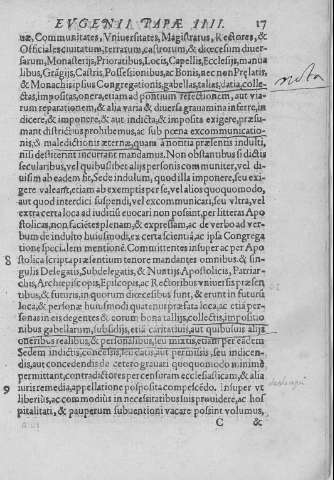 EVGENII PAPÆ IIII. 17
uæ, Communitates, Vniuersitates, Magistratus, Rectores, &
Officiales ciuitatum, terrarum, castrorum, & diœcesum diuer-
sarum, Monasterijs, Prioratibus, Locis, Capellis, Ecclesijs, manua
libus, Grãgijs, Castris, Possessionibus, ac Bonis, nec non Prelatis,
& Monachis ipsius Congregationis, gabellas, talias, datia, collec-
ctas, impositas, onera, etiam ad pontium refectionem, aut via-
rum reparationem, & alia varia & diuersa grauamina inferre, in
dicere, & imponere, & aut indicta, & imposita exigere, præsu-
mant districtius prohibemus, ac sub pœna excommunicatio-
nis, & maledictionis æternæ, quam à nostra præsenti indulti,
nisi destiterint incurrant mandamus. Non obstantibus si dictis
secularibus, vel quibuslibet alijs personis communiter, vel di-
uisim ab eadem sit, Sede indulum, quod illa imponere, seu exi
gere valeant, etiam ab exemptis per se, vel alios quoquomodo,
aut quod interdici suspendi, vel excommunicari, seu vltra, vel
extra certa loca ad iuditiũ euocari non possint, per litteras Apo
stolicas, non facietes plenam, & expressam, ac de verbo ad ver-
bum de indulto huiusmodi, ex certa scientia, ac ipsa Congrega
tione speci.lem mentionẽ. Committentes insuper ac per Apo
8 stolica scripta præsentium tenore mandantes omnibus, & sin-
gulis Delegatis, Subdelegatis, & Nuntijs Apostolicis, Patriar-
chis, Archiepiscopis, Episcopis, ac Rectoribus vniuersis præsen
tibus, & futuris, in quorum diœcesibus sunt, & erunt in futurũ
loca, & bona huiusmodi ut quatenus præfata loca, ac etiã per-
sonas in eis degentes & eorum bona tallijs, collectis, impositio
nibus gabellarum, subsidijs, etiã caritatiuis, aut quibusuis alijs
oneribus realibus, & personalibus, seu mixtis, etiam per eadem
Sedem indictis, concessis, seu datis, aut permissis, seu indicen-
dis, aut concedendis de cetero grauari quoquomodo nõ
permittant, contradictores per censuram ecclesiasticam, & alia
9 iuris remedia, appellatione postposita compescẽdo. Insuper vt
liberius, ac commodius in necessitatibus suis prouidere, ac hos
pitalitati, & pauperum subuentioni vacare possint volumus,
C &
nota